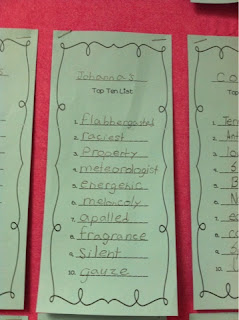 Johanna's
Top Ten List
1. flabbergasted
2. raciest
3. Property
4. meteorologist
5. energenic
6. meloncoly
7. apolled
8. fragrance
9. silent
10. gauze